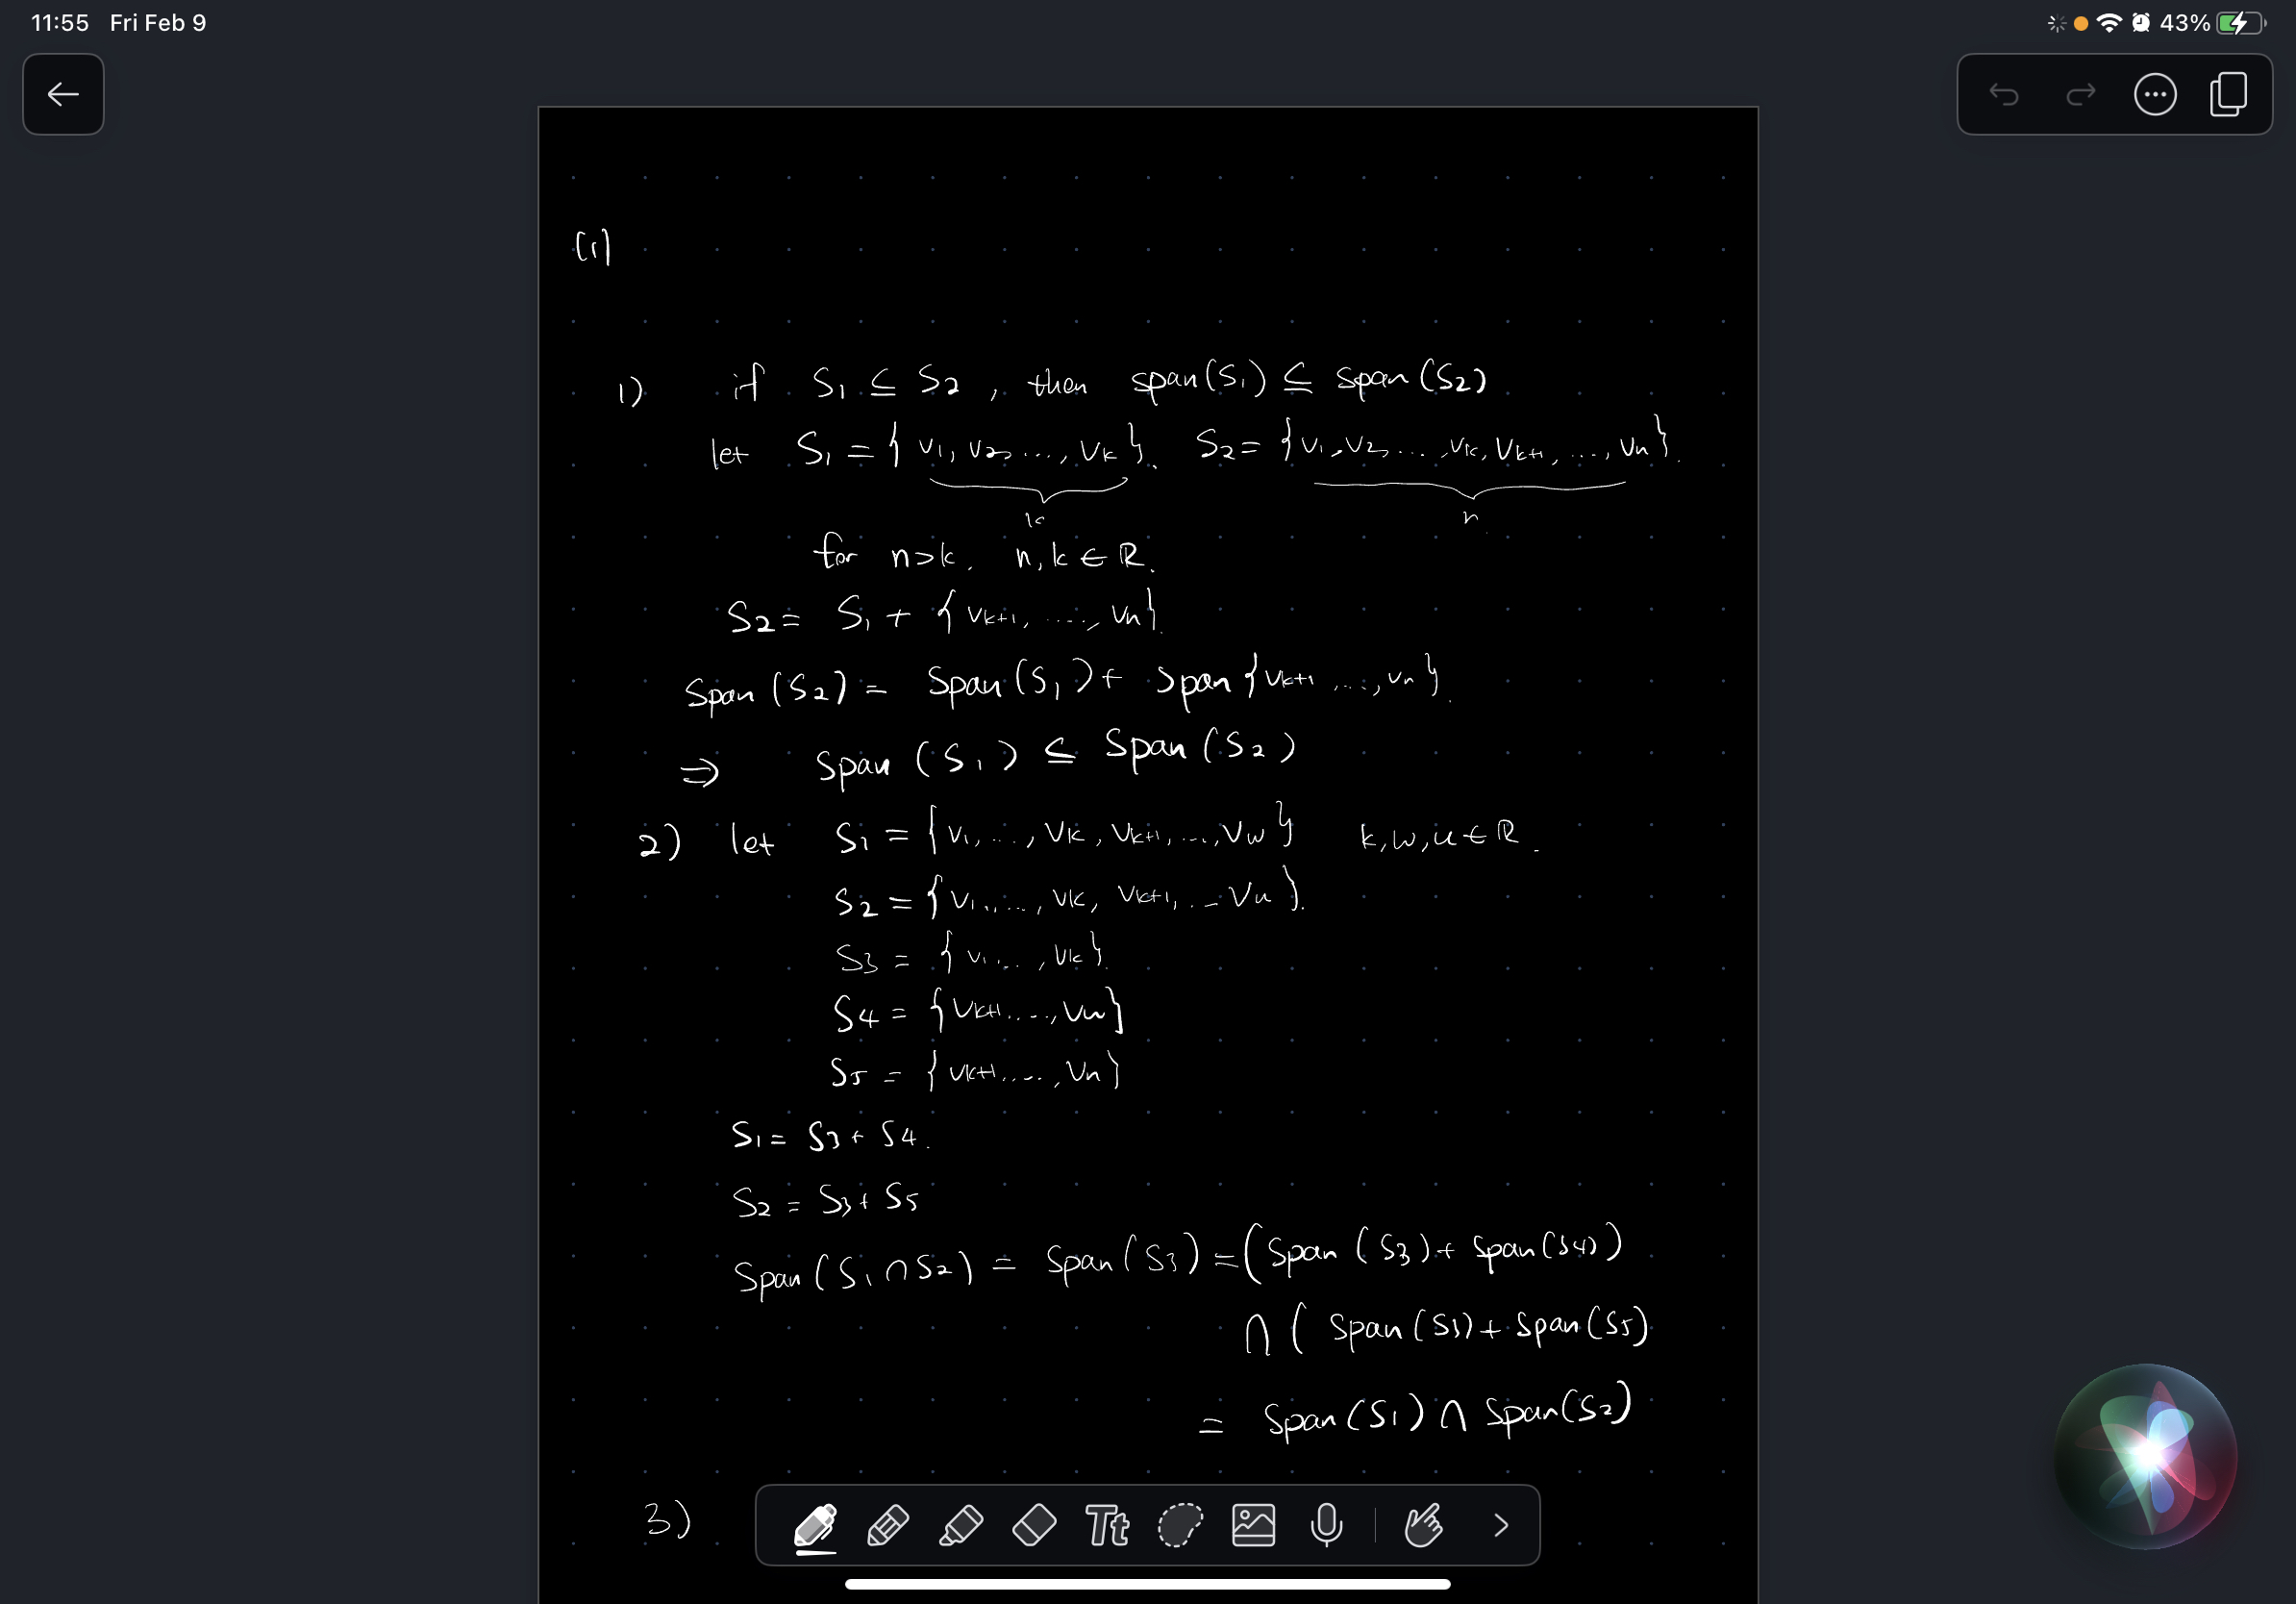 11:55 Fri Feb 9
43%
(1)
1) if S1 ⊆ S2, then span(S1) ⊆ span(S2)
let S1 = {v1, v2, ..., vk}. S2 = {v1, v2, ..., vk, vk+1, ..., vn}.
k n
for n>k. n, k ∈ ℝ.
S2 = S1 + {vk+1, ...., vn}.
Span (S2) = Span (S1) + Span {vk+1 ...., vn}.
⇒ Span (S1) ⊆ Span (S2)
2) let S1 = {v1, ..., vk, vk+1, ..., vw} k, w, u ∈ ℝ.
S2 = {v1, ..., vk, vk+1, ... vu}.
S3 = {v1 ..., vk}.
S4 = {vk+1 ..., vw}
S5 = {vk+1 ...., vn}
S1 = S3 + S4.
S2 = S3 + S5
Span (S1 ∩ S2) = Span (S3) = (Span (S3) + Span (S4))
∩ (Span (S3) + Span (S5)
= Span (S1) ∩ Span (S2)
3)
Tt